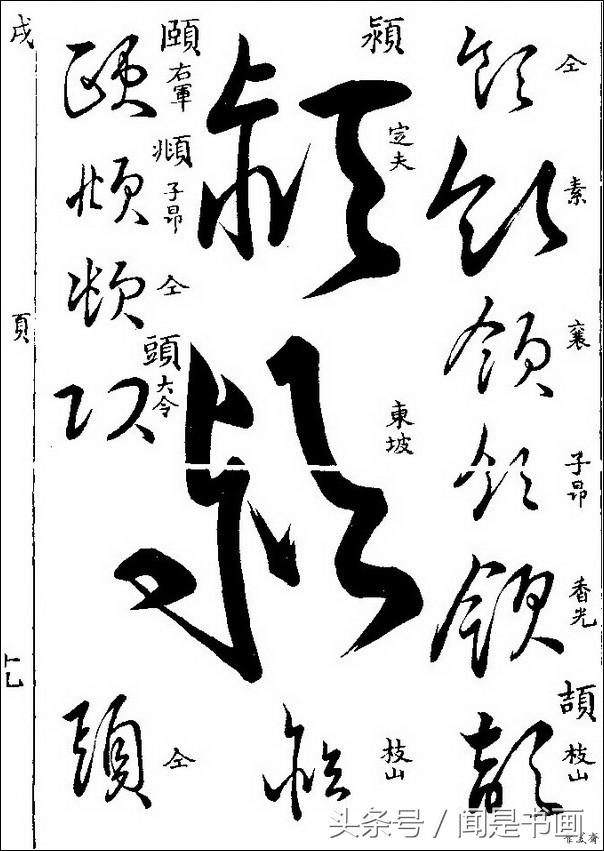 領 仝
領 素
領 襄
領 子昂
領 香光
頡 枝山
潁 定夫
東坡
枝山
頤 右軍
頫 子昂
仝
頭 大令
頭 仝
戌
頁
头条号 / 闻是书画